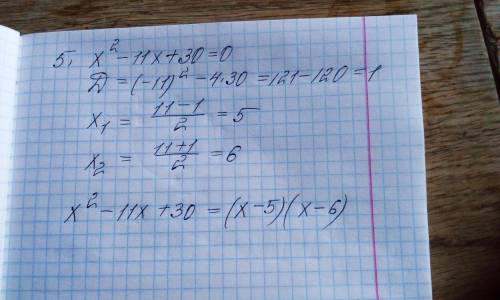 5, x² - 11x + 30 = 0
Д = (-11)² - 4·30 = 121 - 120 = 1
x₁ = (11 - 1)/2 = 5
x₂ = (11 + 1)/2 = 6
x² - 11x + 30 = (x - 5)(x - 6)